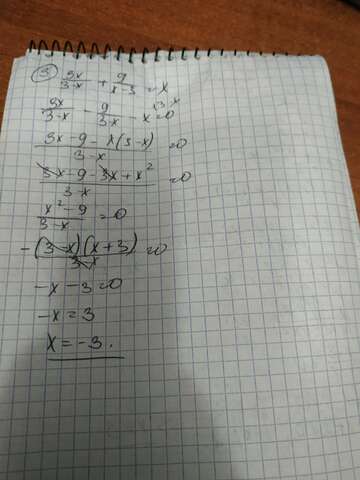 ③ 3x/3-x + 9/x-3 = x
3x/3-x - 9/3-x - x^(3-x = 0
3x-9-x(3-x)/3-x = 0
3x-9-3x+x²/3-x = 0
x²-9/3-x = 0
-(3-x)(x+3)/3-x = 0
-x-3=0
-x=3
x=-3.